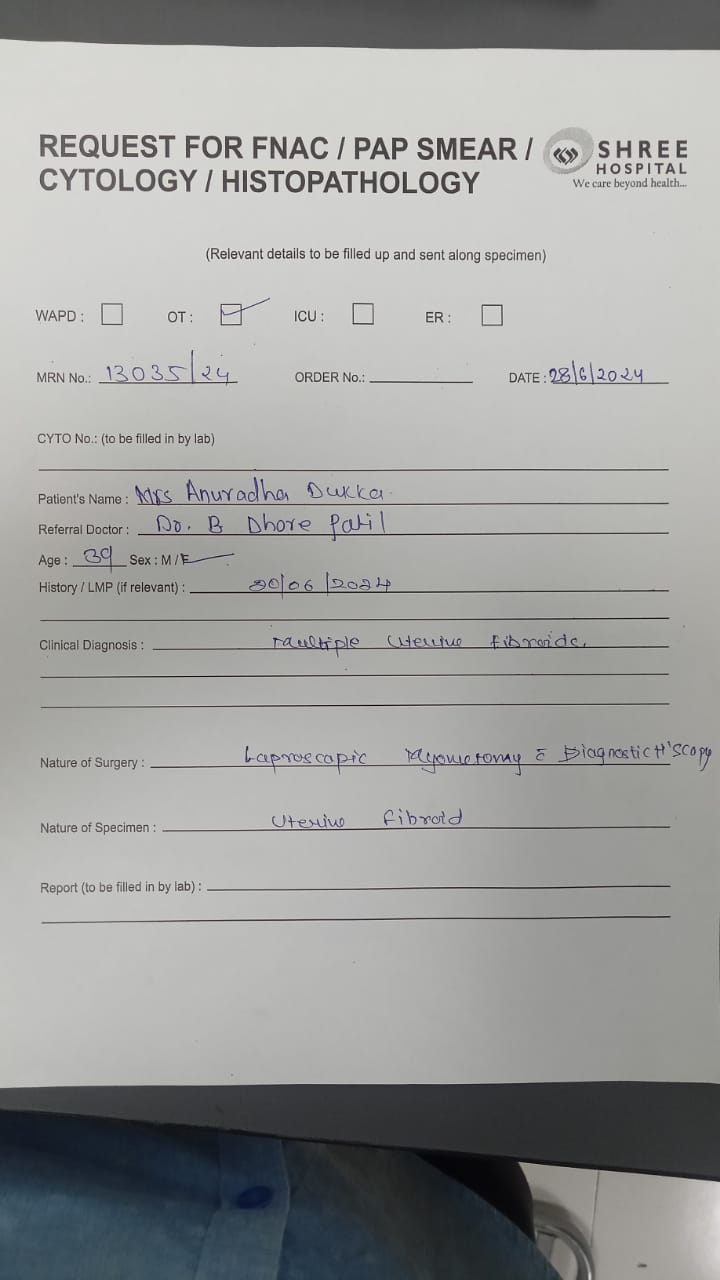 REQUEST FOR FNAC / PAP SMEAR /
CYTOLOGY / HISTOPATHOLOGY
SHREE
HOSPITAL
We care beyond health...
(Relevant details to be filled up and sent along specimen)
WAPD : OT : ICU : ER :
MRN No.: 13035/24 ORDER No.: DATE : 28/6/2024
CYTO No.: (to be filled in by lab)
Patient's Name : Mrs Anuradha Dukka.
Referral Doctor : Do. B Dhore Patil
Age : 39 Sex : M / F
History / LMP (if relevant) : /06/2024
Clinical Diagnosis : Multiple Uterine fibroids.
Nature of Surgery : Laproscapic Myometomy c Diagnostic H'scopy
Nature of Specimen : Uterine fibroid
Report (to be filled in by lab) :